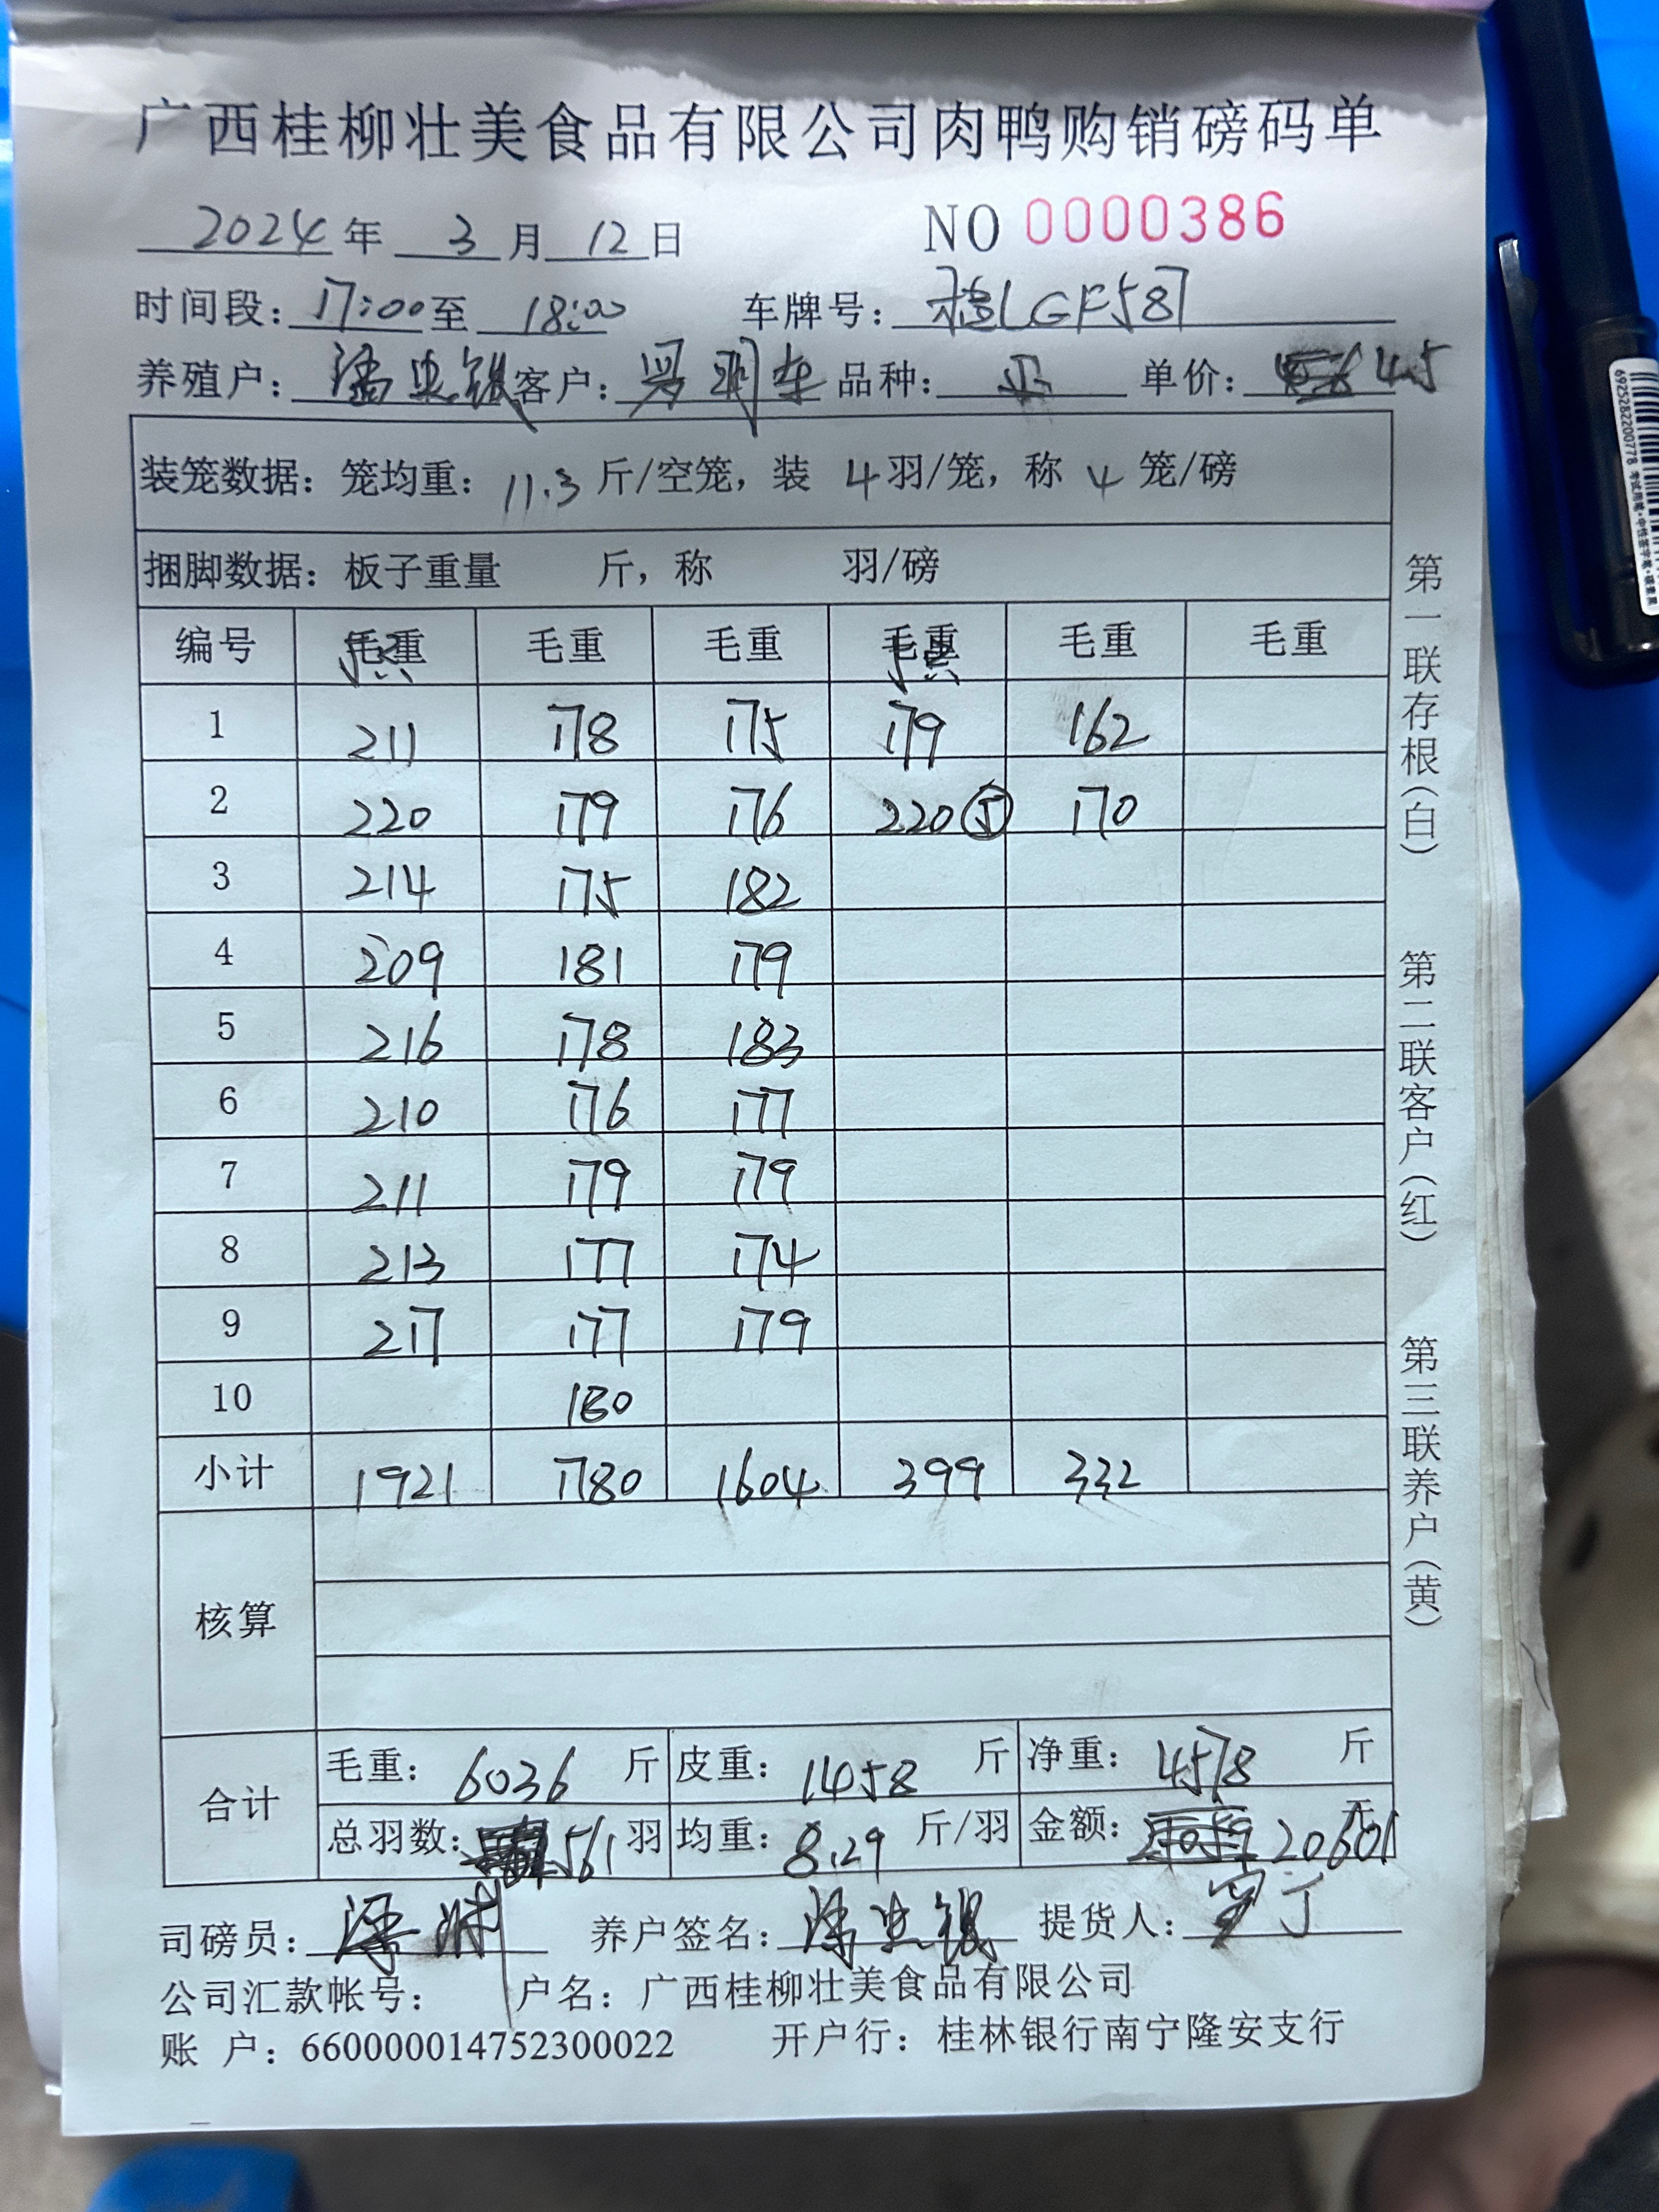 广西桂柳壮美食品有限公司肉鸭购销磅码单
2024年 3月12日 NO 0000386
时间段：17:00至 18:00 车牌号：桂LGF587
养殖户： 客户： 品种： 单价：4.5
装笼数据：笼均重：11.3斤/空笼，装 4羽/笼，称 4 笼/磅
捆脚数据：板子重量 斤，称 羽/磅
编号 毛重 毛重 毛重 毛重 毛重 毛重
1 211 178 175 179 162
2 220 179 176 220⑤ 170
3 214 175 182
4 209 181 179
5 216 178 183
6 210 176 177
7 211 179 179
8 213 177 174
9 217 177 179
10 180
小计 1921 1780 1604 399 332
核算
合计 毛重：6036 斤 皮重：1458 斤 净重：4578 斤
总羽数：561羽 均重：8.29 斤/羽 金额：20601元
司磅员： 养户签名： 提货人：
公司汇款帐号： 户名：广西桂柳壮美食品有限公司
账 户：660000014752300022 开户行：桂林银行南宁隆安支行
第一联存根（白）
第二联客户（红）
第三联养户（黄）
6925282200778